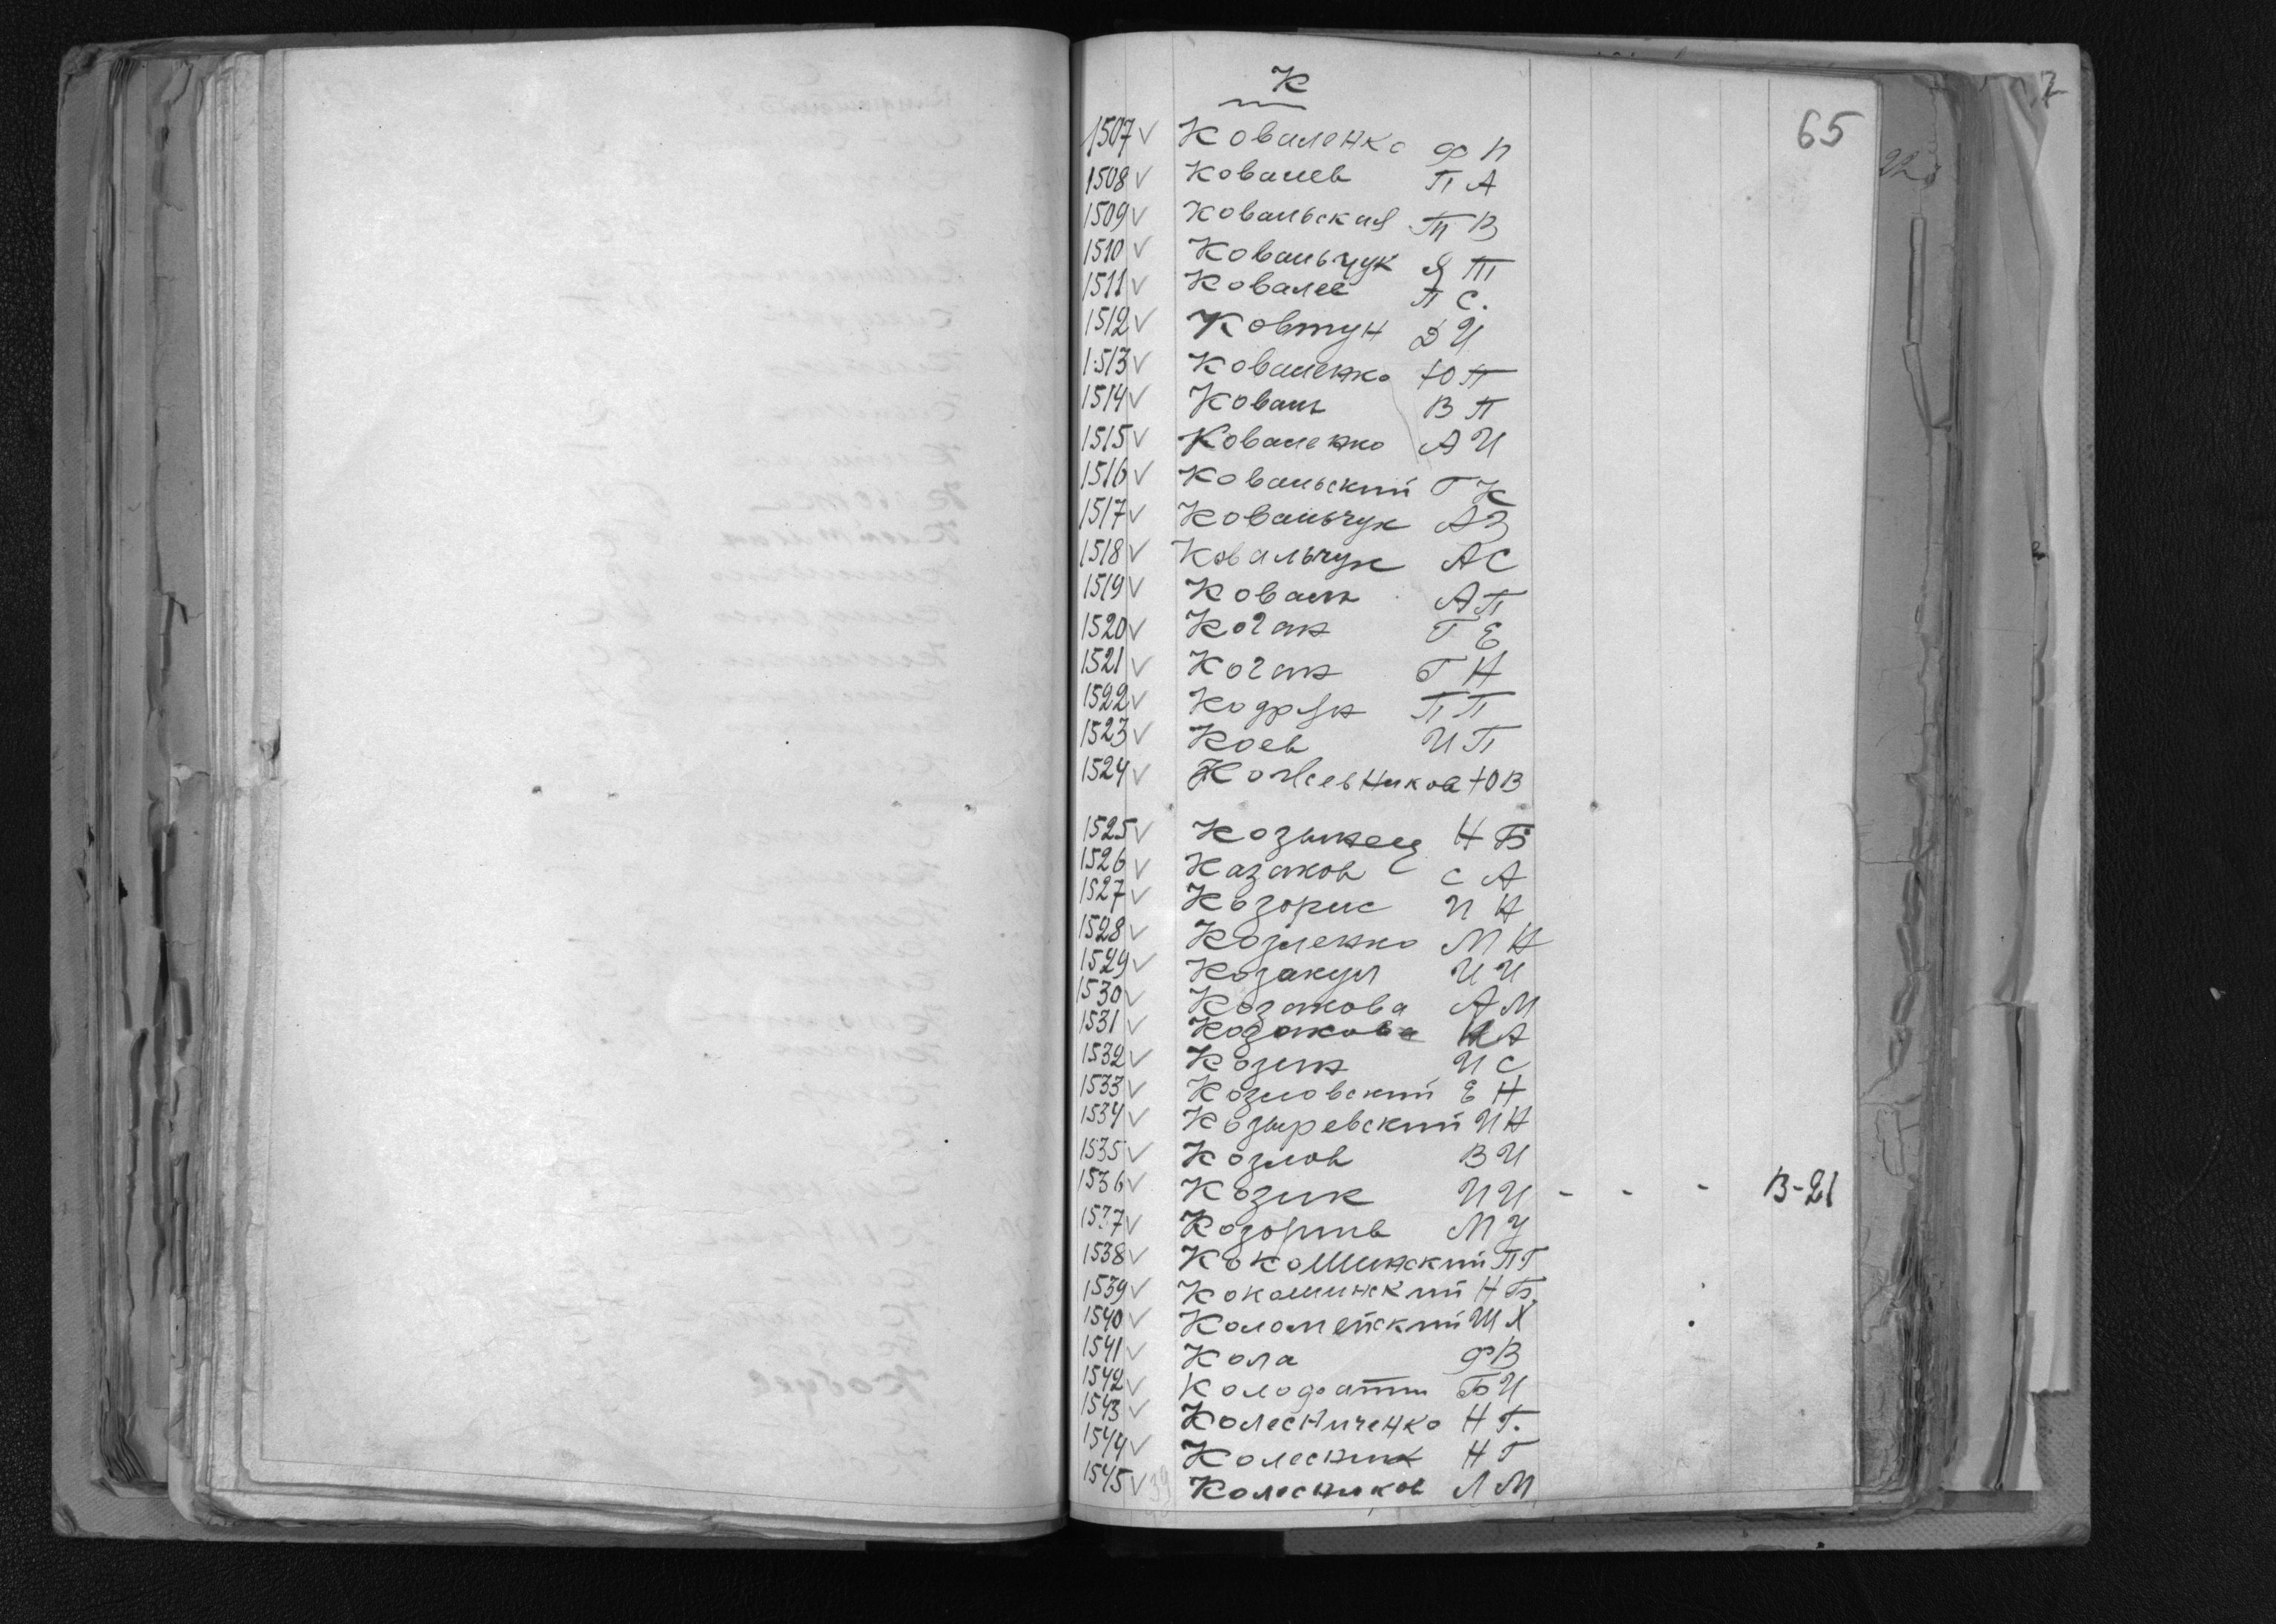 К
65
1507 Коваленко Ф П
1508 Ковалев П А
1509 Ковальская Т В
1510 Ковальчук Я Т
1511 Ковалев П С.
1512 Ковтун Д И
1513 Коваленко Ю П
1514 Коваль В П
1515 Коваленко А И
1516 Ковальский Г К
1517 Ковальчук А З
1518 Ковальчук А С
1519 Коваль А П
1520 Коган Г Е
1521 Коган Г Н
1522 Кодрян П П
1523 Коев И П
1524 Кожевников Ю В
1525 Козынец Н Б
1526 Казаков С А
1527 Козорис И Н
1528 Козленко М Н
1529 Козакул И И
1530 Козакова А М
1531 Козакова А
1532 Козин И С
1533 Козловский Е Н
1534 Козыревский И Н
1535 Козлов В И
1536 Козик И И - - - В-21
1537 Козорив М У
1538 Кокошинский П Г
1539 Кокошинский Н Б.
1540 Коломейский Ш Х
1541 Кола Ф В
1542 Колодатти Б И
1543 Колесниченко Н Г.
1544 Колесник Н Г
1545 39 Колесников Л М